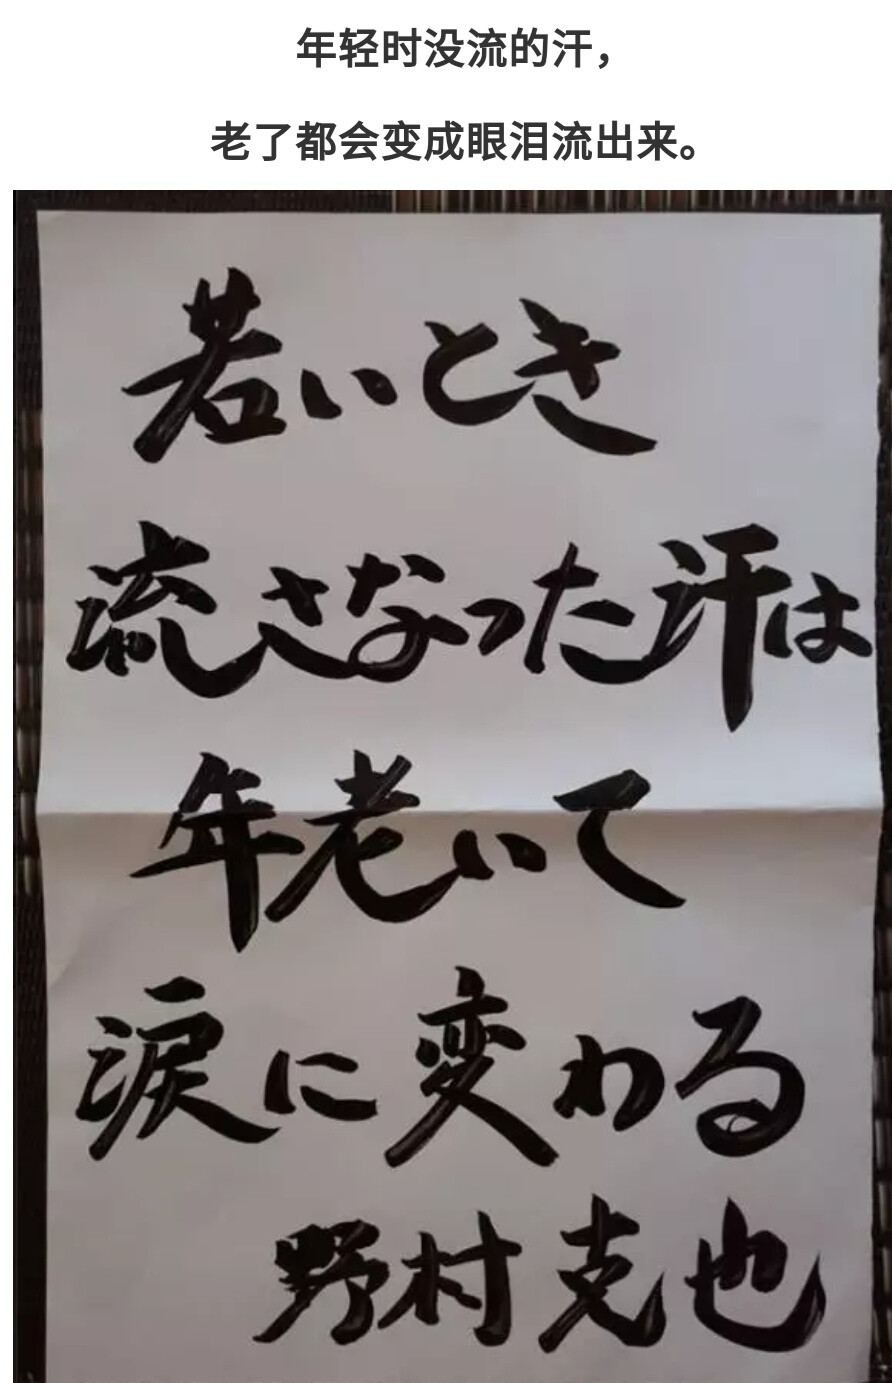 年轻时没流的汗，
老了都会变成眼泪流出来。
若いとき
流さなった汗は
年老いて
涙に変わる
野村克也